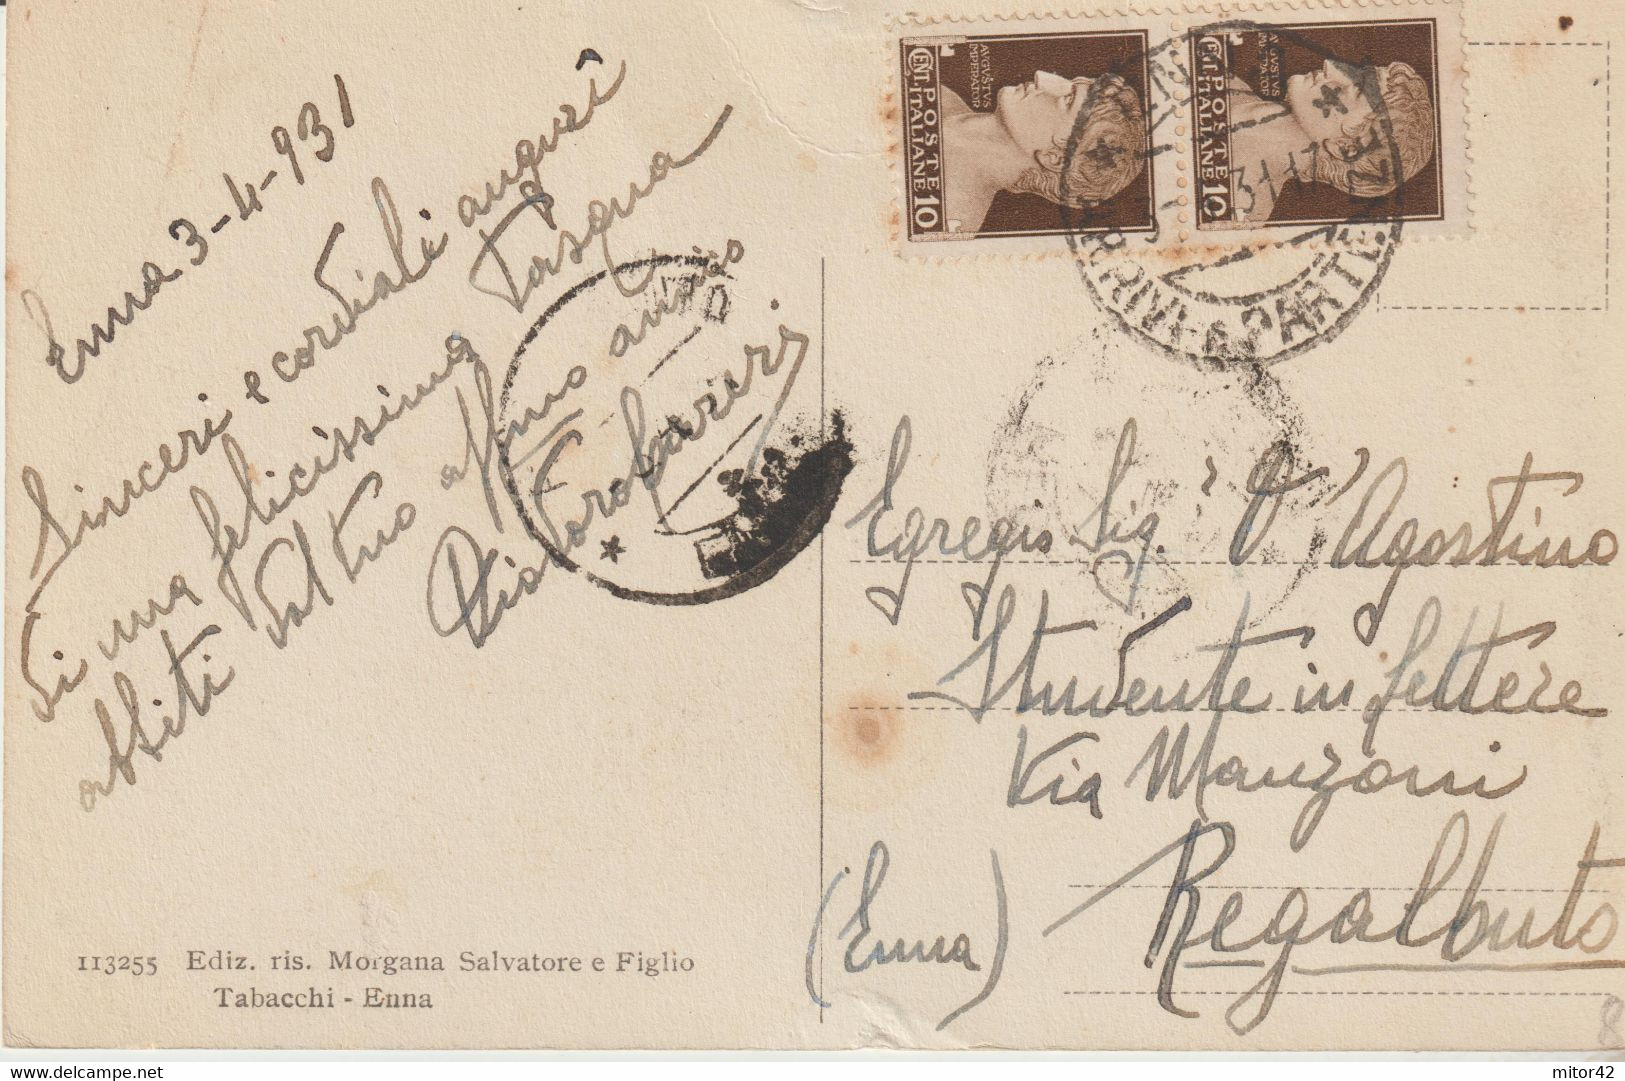 Enna 3-4-931
Sinceri e cordiali auguri
di una felicissima Pasqua
abbiti dal tuo affmo amico
113255 Ediz. ris. Morgana Salvatore e Figlio
Tabacchi - Enna
AVGVSTVS
IMPERATOR
POSTE
ITALIANE
CENT. 10
AVGVSTVS
IMPERATOR
POSTE
ITALIANE
CENT. 10
ARRIVI E PARTENZE
Egregio Sig. D'Agostino
Studente in lettere
Via Manzoni
Regalbuto
(Enna)
8
mitor42